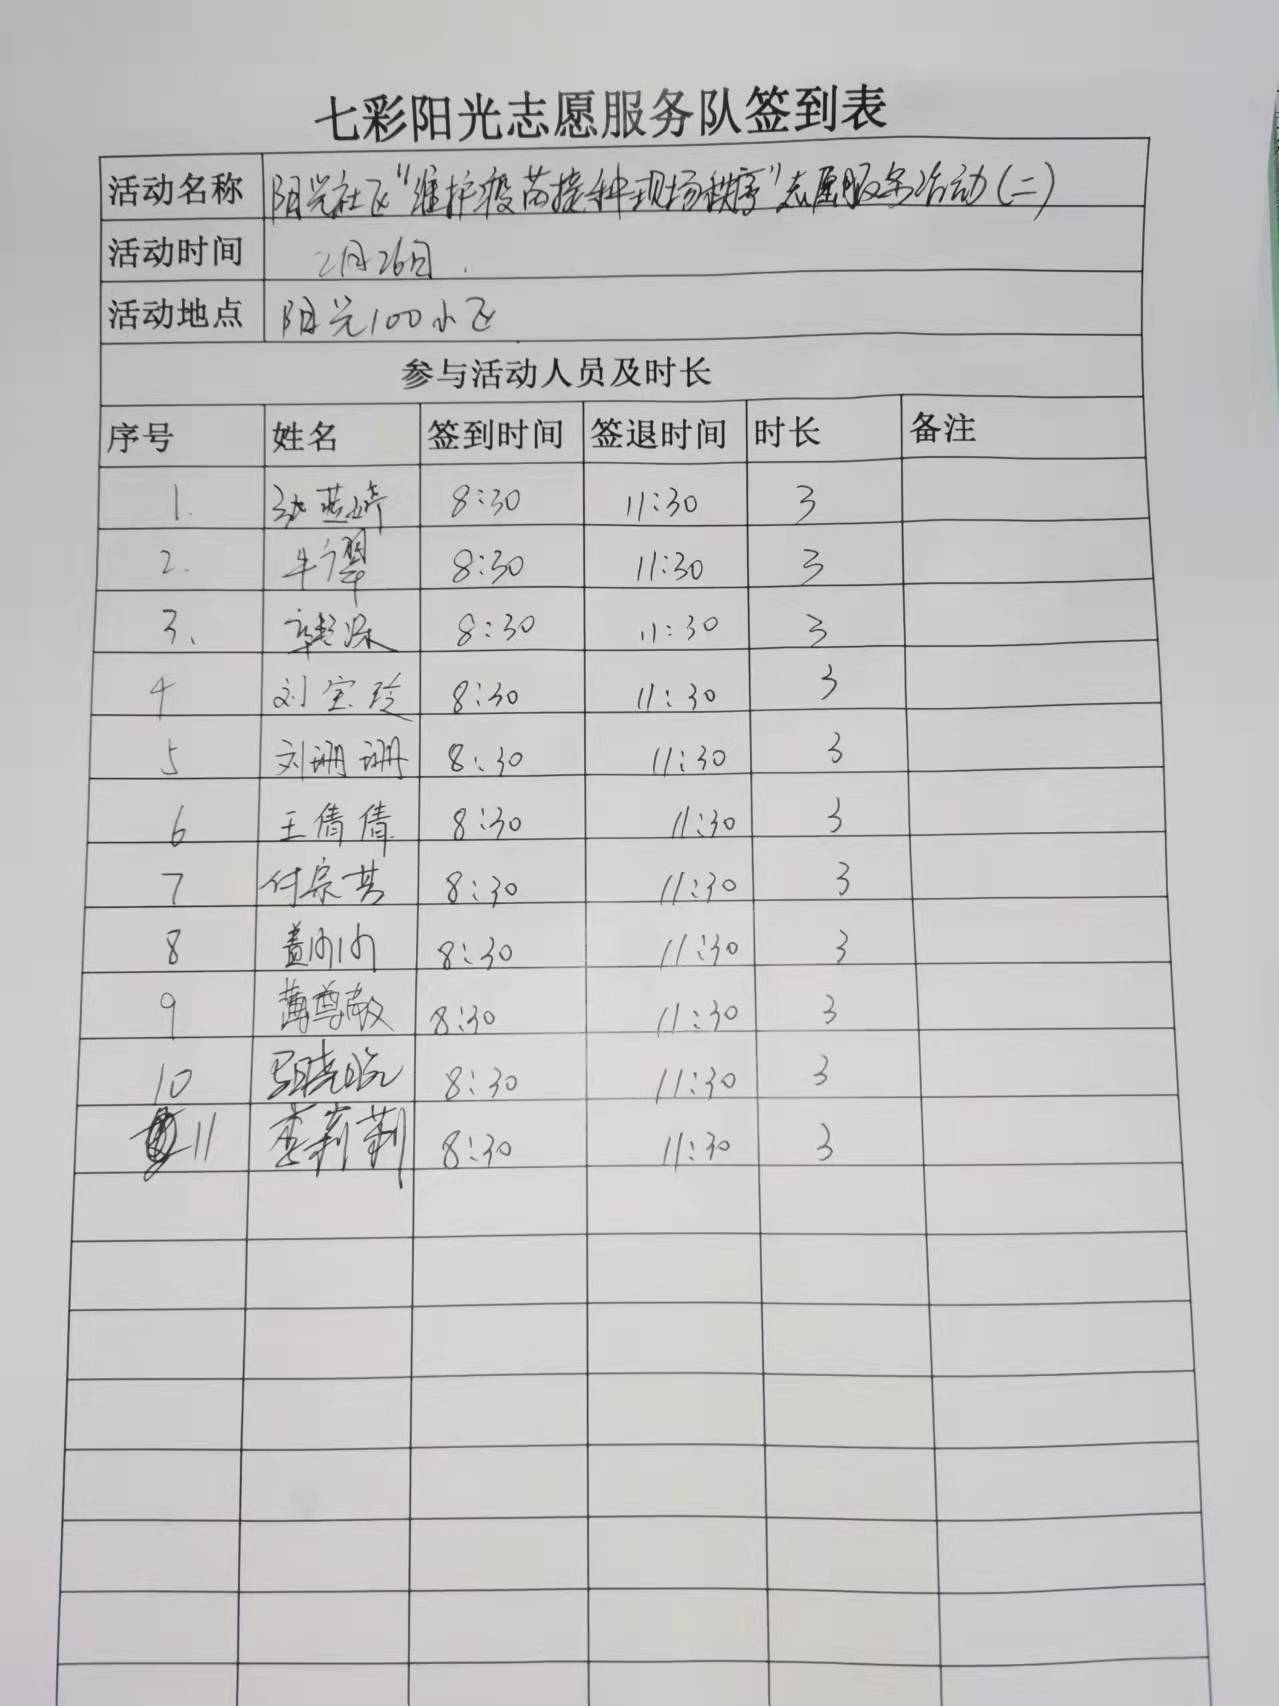 七彩阳光志愿服务队签到表
活动名称 阳光社区“维护疫苗接种现场秩序”志愿服务活动(二)
活动时间 2月26日.
活动地点 阳光100小区
参与活动人员及时长
序号 姓名 签到时间 签退时间 时长 备注
1. 张燕婷 8:30 11:30 3
2. 牛译翠 8:30 11:30 3
3、 8:30 11:30 3
4 刘宝玲 8:30 11:30 3
5 刘珊珊 8:30 11:30 3
6 王倩倩 8:30 11:30 3
7 付宗芸 8:30 11:30 3
8 盖内内 8:30 11:30 3
9 蔄尊敬 8:30 11:30 3
10 马晓晓 8:30 11:30 3
11 李莉莉 8:30 11:30 3